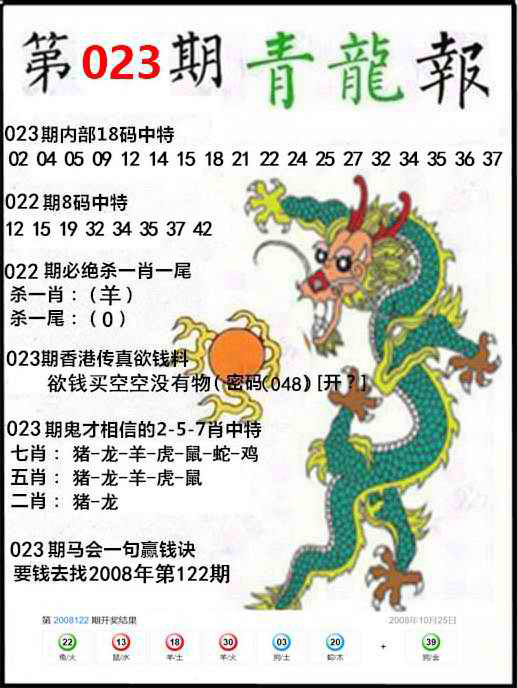 第023期青龍報
023期内部18码中特
02 04 05 09 12 14 15 18 21 22 24 25 27 32 34 35 36 37
022期8码中特
12 15 19 32 34 35 37 42
022期必绝杀一肖一尾
杀一肖：（羊）
杀一尾：（0）
023期香港传真欲钱料
欲钱买空空没有物(密码(048)[开？]
023期鬼才相信的2-5-7肖中特
七肖：猪-龙-羊-虎-鼠-蛇-鸡
五肖：猪-龙-羊-虎-鼠
二肖：猪-龙
023期马会一句赢钱诀
要钱去找2008年第122期
第 2008122 期开奖结果 2008年10月25日
22 13 18 30 03 20 + 39
兔/火 鼠/水 羊/土 羊/火 狗/土 蛇/木 狗/金